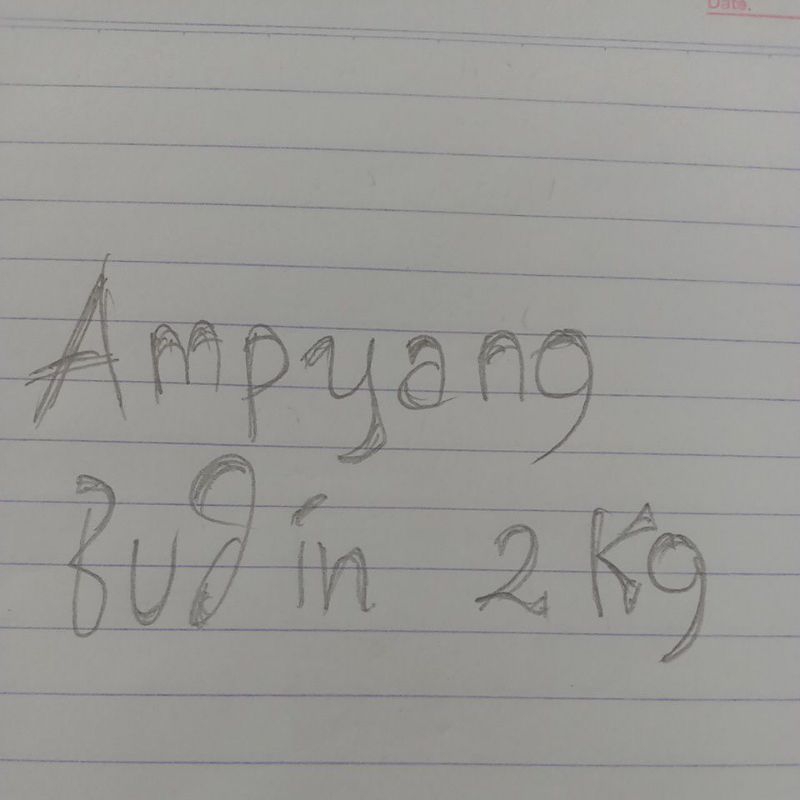 Date.
Ampyang
Budin 2 Kg